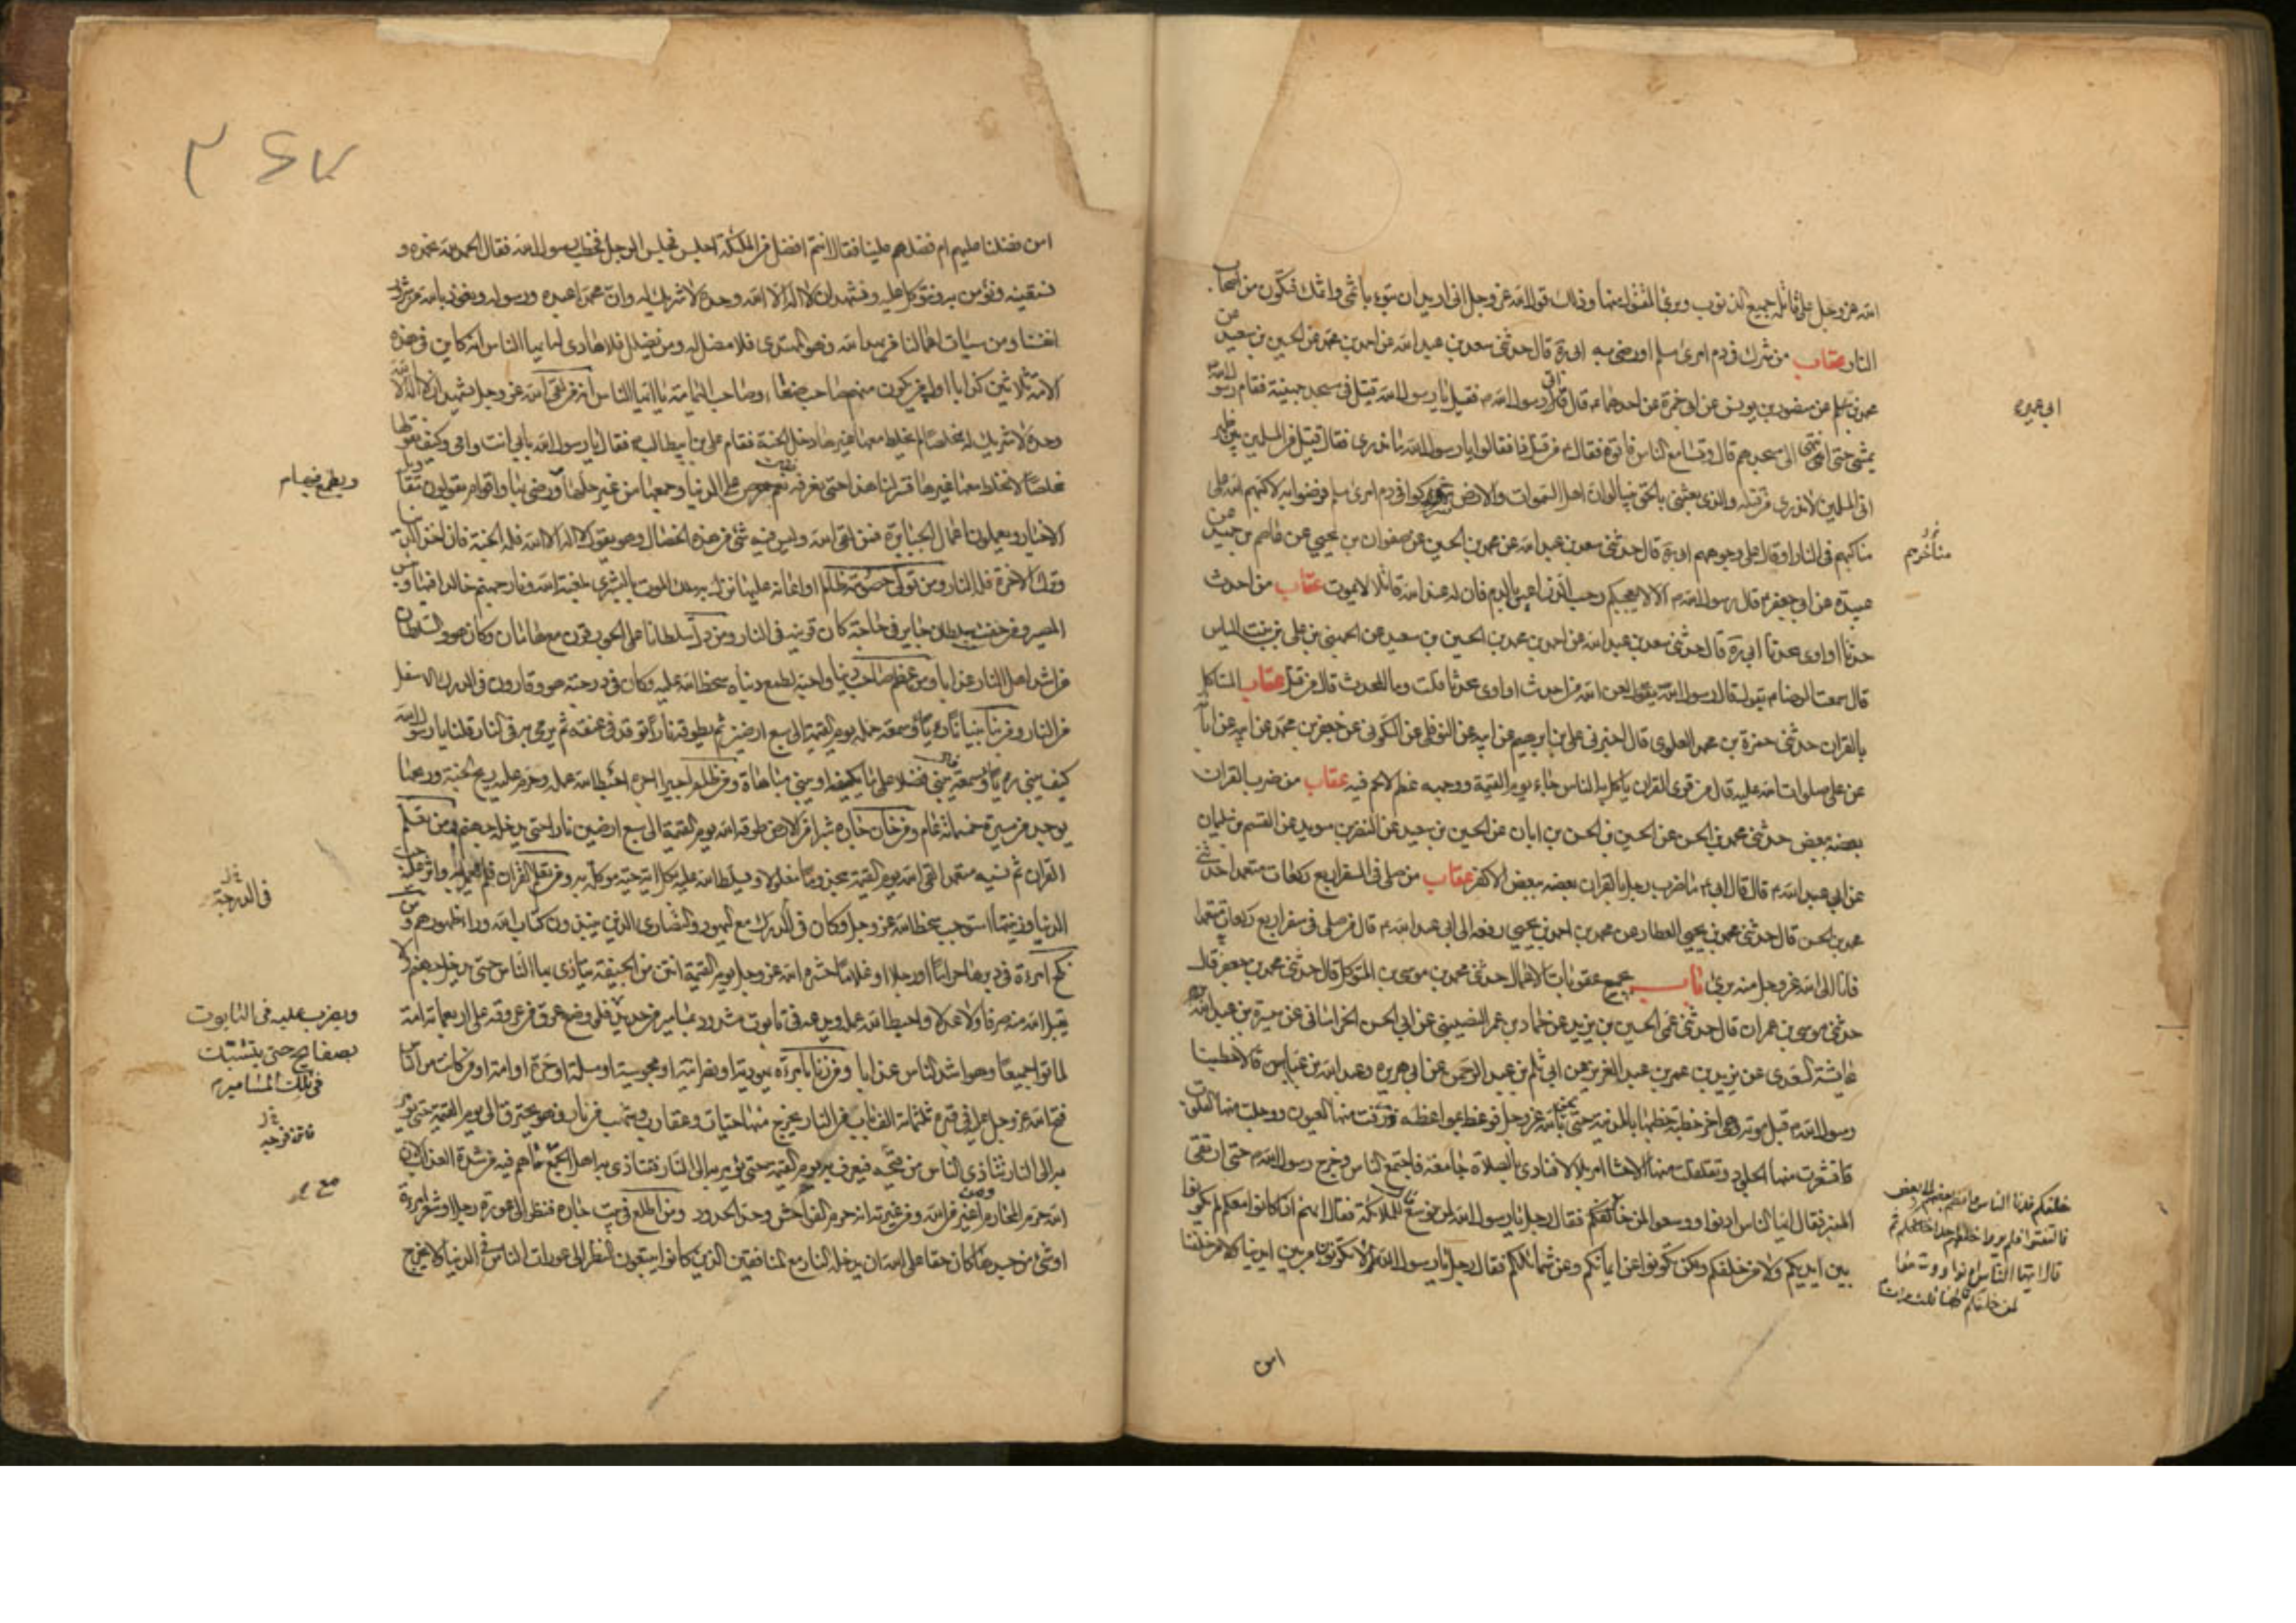 الله عز وجل على قاتله جميع الذنوب وبرئ المقتول منها وذلك قول الله عز وجل انى اريد ان تبوء باثمى واثمك فتكون من اصحاب
النار عقاب من شرك فى دم امرئ مسلم او رضى به ابى ره قال حدثنى سعد بن عبد الله عن احمد بن محمد عن الحسين بن سعيد عن
محمد بن عن منصور بن يونس عن ابى حمزة عن احدهما ع قال اتى رسول الله ص فقيل يا رسول الله قتيل فى مسجد جهينة فقام رسول الله
يمشى حتى انتهى الى مسجدهم قال وتسامع الناس فاتوه فقال ص من قتل ذا فقالوا يا رسول الله ما ندرى فقال قتيل من المسلمين بين ظهر
انى المسلمين لا يدرى من قتله والذى بعثنى بالحق نبيا لو ان اهل السموات والارض شركوا فى دم امرئ مسلم ورضوا به لاكبهم الله على
مناخرهم فى النار او قال على وجوههم ابى ره قال حدثنى سعد بن عبد الله عن محمد بن الحسين عن صفوان بن يحيى عن عاصم بن حميد عن
عبيدة عن ابى جعفر ع قال رسول الله ص الا لا يعجبكم رحب الذراعين بالدم فان له عند الله قاتلا لا يموت عقاب من احدث
حدثا او اوى محدثا ابى ره قال حدثنى سعد بن عبد الله عن احمد بن محمد بن الحسين بن سعيد عن الحسن بن على بن بنت الياس
قال سمعت الرضا ع يقول قال رسول الله ص لعن الله من احدث حدثا او اوى محدثا قلت وما المحدث قال من قتل عقاب المتاكل
بالقران حدثنى حمزة بن محمد العلوى قال اخبرنى على بن ابرهيم عن ابيه عن النوفلى عن السكونى عن جعفر بن محمد عن ابيه عن ابائه
عن على صلوات الله عليه قال من قرئ القران ياكل به الناس جاء يوم القيمة ووجهه عظم لا لحم فيه عقاب من ضرب القران
بعضه ببعض حدثنى محمد بن الحسن عن الحسين بن الحسن بن ابان عن الحسين بن سعيد عن النضر بن سويد عن القسم بن سليمان
عن ابى عبد الله ع قال قال ابى ع ما ضرب رجل بالقران بعضه ببعض الا كفر عقاب من صلى فى السفر اربع ركعات متعمدا حدثنى
محمد بن الحسن قال حدثنى محمد بن يحيى العطار عن محمد بن احمد بن يحيى رفعه الى ابى عبد الله ع قال من صلى فى سفر اربع ركعات متعمدا
فانا الى الله عز وجل منه برئ باب يجمع عقوبات الاعمال حدثنى محمد بن موسى بن المتوكل قال حدثنى محمد بن جعفر قال
حدثنى موسى بن عمران قال حدثنى عمى الحسين بن يزيد عن حماد بن عمر النصيبى عن ابى الحسن الخراسانى عن ميسرة بن عبد الله
عايشة السعدى عن يزيد بن عمر بن عبد العزيز عن ابى سلمة بن عبد الرحمن عن ابى هريره وعبد الله بن عباس قالا خطبنا
رسول الله ص قبل موته وهى اخر خطبة خطبها بالمدينة حتى لحق بالله عز وجل فوعظ بمواعظ ذرفت منها العيون ووجلت منها القلوب
فاقشعرت منها الجلود وتقلقلت منها الاحشا امر بلالا فنادى بالصلوة جامعة فاجتمع الناس وخرج رسول الله ص حتى ارتقى
المنبر فقال ايها الناس ادنوا ووسعوا لمن خلفكم فقال رجل يا رسول الله لمن نوسع قال للملائكة فقال انهم اذا كانوا معكم لم يكونوا
بين ايديكم ولا من خلفكم ولكن يكونوا عن ايمانكم وعن شمائلكم فقال رجل يا رسول الله ولم لا يكونون من بين ايدينا ولا من خلفنا
ابى عبيده
مناخرهم
خلفكم فدنا الناس وانضم بعضهم الى بعض
فالتفتوا فلم يروا خلفهم احدا ثم
قال ايها الناس ادنوا ووسعوا
لمن خلفكم قالها ثلث مرات
امن
٣٤٧
امن فضلنا عليهم ام فضلهم علينا فقال انتم افضل من الملئكة اجلس فجلس الرجل فخطب رسول الله فقال الحمد لله نحمده و
نستعينه ونؤمن به ونتوكل عليه ونشهد ان لا اله الا الله وحده لا شريك له وان محمدا عبده ورسوله ونعوذ بالله من شرور
انفسنا ومن سيئات اعمالنا من يهد الله فهو المهتدى فلا مضل له ومن يضلل فلا هادى له ايها الناس انه كاين فى هذه
الامة ثلاثين كذابا اول من يكون منهم صاحب صنعاء وصاحب اليمامة يا ايها الناس انه من لقى الله عز وجل يشهد ان لا اله الا الله
وحده لا شريك له مخلصا لم يخلط معها غيرها دخل الجنة فقام على بن ابيطالب ع فقال يا رسول الله بابى انت وامى وكيف يقولها
مخلصا لا يخلط معها غيرها فسر لنا هذا حتى نعرفه فقال نعم حرص على الدنيا وجمعها من غير حلها ورضى بها واقوام يقولون اقاويل
الاخيار ويعملون اعمال الجبابرة فمن لقى الله وليس فيه شئ من هذه الخصال وهو يقول لا اله الا الله فله الجنة فان اخذ الدنيا
وترك الاخرة فله النار ومن تولى خصومة ظالم او اعانه عليها نزل به ملك الموت بالبشرى بلعنة الله ونار جهنم خالدا فيها وبئس
المصير ومن خف لسلطان جاير فى حاجة كان قرينه فى النار ومن دل سلطانا على الجور قرن مع هامان وكان هو والسلطان
من اشد اهل النار عذابا ومن عظم صاحب دنيا واحبه لطمع دنياه سخط الله عليه وكان فى درجته هو وقارون فى الدرك الاسفل
من النار ومن بنا بنيانا رياء وسمعة حمله يوم القيمة الى سبع ارضين ثم يطوقه نارا توقد فى عنقه ثم يرمى به فى النار قلنا يا رسول الله
كيف يبنى رياء وسمعة قال يبنى فضلا على ما يكفيه او يبنى مباهاة ومن ظلم اجيرا اجره احبط الله عمله وحرم عليه ريح الجنة وريحها
يوجد من مسيرة خمسمائة عام ومن خان جاره شبرا من الارض طوقه الله يوم القيمة الى سبع ارضين نارا حتى يدخله جهنم ومن تعلم
القران ثم نسيه متعمدا لقى الله يوم القيمة مجذوما مغلولا ويسلط الله عليه بكل اية حية موكلة به ومن تعلم القران فلم يعمل به واثر عليه حب
الدنيا وزينتها استوجب سخط الله عز وجل وكان فى الدرك مع اليهود والنصارى الذين ينبذون كتاب الله وراء ظهورهم ومن
نكح امرءة فى دبرها حراما او رجلا او غلاما حشره الله عز وجل يوم القيمة انتن من الجيفة يتاذى به الناس حتى يدخل جهنم ولا
يقبل الله منه صرفا ولا عدلا واحبط الله عمله ويدعه فى تابوت مشدود بمسامير من حديد فلو وضع عرق من عروقه على اربعمائة امة
لماتوا جميعا وهو اشد الناس عذابا ومن زنا بامرءة يهودية او نصرانية او مجوسية او مسلمة او حرة او امة او من كانت من الناس
فتح الله عز وجل عليه فى قبره ثلثمائة الف باب من النار يخرج منها حيات وعقارب وشهب من نار وهو يحترق الى يوم القيمة حتى يؤمر
به الى النار يتاذى الناس من نتن فرجه فيعرف به يوم القيمة حتى يؤمر به الى النار فيتاذى به اهل الجمع مع ما هم فيه من شدة العذاب لان
الله حرم المحارم وما احد اغير من الله ومن غيرته انه حرم الفواحش وحد الحدود ومن اطلع فى بيت جاره فنظر الى عورة رجل او شعر امرءة
او شئ من جسدها كان حقا على الله ان يدخله النار مع المنافقين الذين كانوا يتبعون النظر الى عورات الناس فى الدنيا ولا يخرج
فى الدرجة
ويضرب عليه فى التابوت
بصفايح حتى يتشبك
فى تلك المسامير
نتن فرجه
مع ما